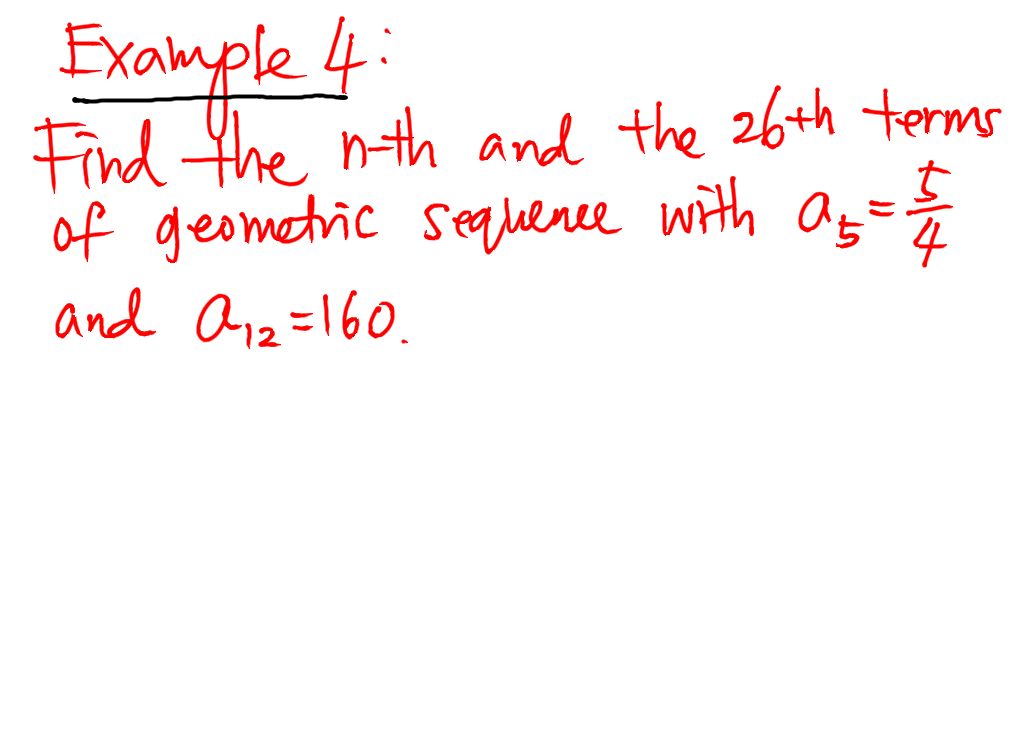 Example 4:
Find the n-th and the 26th terms
of geometric sequence with a₅ = 5/4
and a₁₂ = 160.